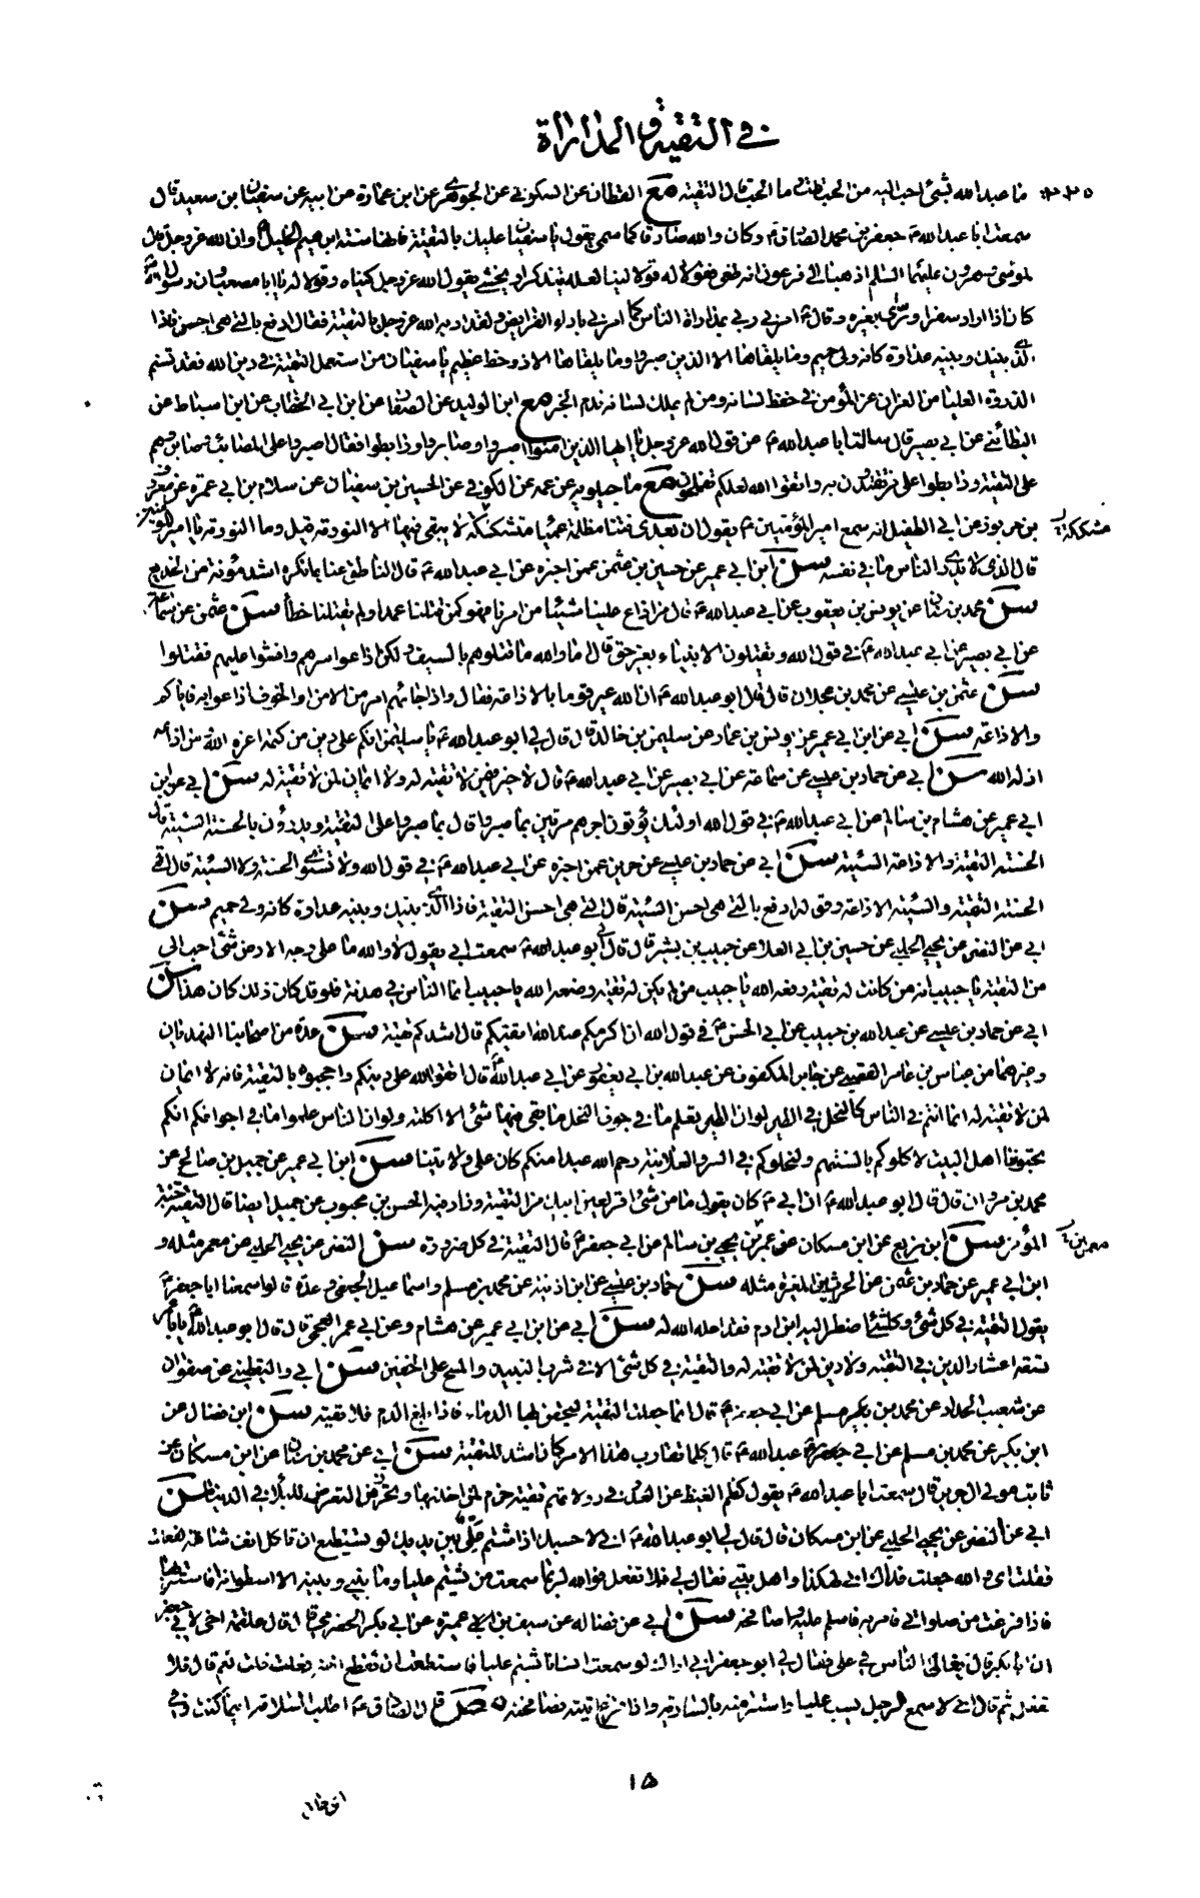 في التقية و المداراة
ما عبد الله بشئ احب اليه من الخبأ قلت ما الخب قال التقية مع القطان عن السكوني عن الجوهري عن ابن عمارة عن ابيه عن سفيان بن سعيد قال
سمعت ابا عبد الله ع جعفر بن محمد الصادق ع وكان والله صادقا كما سمي يقول يا سفيان عليك بالتقية فانها سنة ابرهيم الخليل ع وان الله عز وجل قال
لموسى وهرون عليهما السلم اذهبا الى فرعون انه طغى فقولا له قولا لينا لعله يتذكر او يخشى يقول الله عز وجل كنياه وقولا له يا ابا مصعب وان رسول الله ص
كان اذا اراد سفرا ورّى بغيره وقال ع امرني ربي بمداراة الناس كما امرني باداء الفرايض ولقد ادبه الله عز وجل بالتقية فقال ادفع بالتي هي احسن فاذا
الذي بينك وبينه عداوة كانه ولي حميم وما يلقاها الا الذين صبروا وما يلقاها الا ذو حظ عظيم يا سفيان من استعمل التقية في دين الله فقد تسنم
الذروة العليا من العز ان عز المؤمن في حفظ لسانه ومن لم يملك لسانه ندم الخبر مع ابن الوليد عن الصفار عن ابن ابي الخطاب عن ابن اسباط عن
البطائني عن ابي بصير قال سالت ابا عبد الله ع عن قول الله عز وجل يا ايها الذين امنوا اصبروا وصابروا ورابطوا فقال اصبروا على المصائب وصابروهم
على التقية ورابطوا على من تقتدون به واتقوا الله لعلكم تفلحون مع ماجيلويه عن عمه عن الكوفي عن الحسين بن سفيان عن سلام بن ابي عمرة عن معروف
بن خربوذ عن ابي الطفيل انه سمع امير المؤمنين ع يقول ان بعدي فتنا مظلمة عمياء متشككة لا يبقى فيها الا النومة قيل وما النومة يا امير المؤمنين
مشككة
قال الذي لا يدري الناس ما في نفسه سن ابن ابي عمير عن حسين بن عثمن عمن اخبره عن ابي عبد الله ع قال الناطق عنا بما نكره اشد مؤنة من المذيع
سن محمد بن سنان عن يونس بن يعقوب عن ابي عبد الله ع قال من اذاع علينا شيئا من امرنا فهو كمن قتلنا عمدا ولم يقتلنا خطأ سن عثمن عن سماعة
عن ابي بصير عن ابي عبد الله ع في قول الله ويقتلون الانبياء بغير حق قال اما والله ما قتلوهم بالسيف ولكن اذاعوا سرهم وافشوا عليهم فقتلوا
سن عثمن بن عيسى عن محمد بن عجلان قال قال ابو عبد الله ع ان الله عير قوما بالاذاعة فقال واذا جائهم امر من الامن او الخوف اذاعوا به فاياكم
والاذاعة سن ابي عن ابن ابي عمير عن يونس بن عمار عن سليمن بن خالد قال قال لي ابو عبد الله ع يا سليمن انكم على دين من كتمه اعزه الله ومن اذاعه
اذله الله سن ابي عن حماد بن عيسى عن سماعة عن ابي بصير عن ابي عبد الله ع قال لا خير فيمن لا تقية له ولا ايمان لمن لا تقية له سن ابي عن ابن
ابي عمير عن هشام بن سالم عن ابي عبد الله ع في قول الله اولئك يؤتون اجرهم مرتين بما صبروا قال بما صبروا على التقية ويدرؤن بالحسنة السيئة قال
الحسنة التقية والاذاعة السيئة سن ابي عن حماد بن عيسى عن حريز عمن اخبره عن ابي عبد الله ع في قول الله ولا تستوي الحسنة ولا السيئة قال
الحسنة التقية والسيئة الاذاعة وقوله ادفع بالتي هي احسن السيئة قال التي هي احسن التقية فاذا الذي بينك وبينه عداوة كانه ولي حميم سن
ابي عن النضر عن يحيى الحلبي عن حسين بن ابي العلا عن حبيب بن بشر قال قال لي ابو عبد الله ع سمعت ابي يقول لا والله ما على وجه الارض شئ احب الي
من التقية يا حبيب انه من كانت له تقية رفعه الله يا حبيب من لم يكن له تقية وضعه الله يا حبيب انما الناس في هدنة فلو قد كان ذلك كان هذا سن
ابي عن حماد بن عيسى عن عبد الله بن حبيب عن ابي الحسن ع في قول الله ان اكرمكم عند الله اتقيكم قال اشدكم تقية سن عدة من اصحابنا النهديان
وغيرهما عن عباس بن عامر القصبي عن جابر المكفوف عن عبد الله بن ابي يعفور عن ابي عبد الله ع قال اتقوا الله على دينكم واحجبوه بالتقية فانه لا ايمان
لمن لا تقية له انما انتم في الناس كالنحل في الطير لو ان الطير يعلم ما في جوف النحل ما بقي فيها شئ الا اكلته ولو ان الناس علموا ما في اجوافكم انكم
تحبونا اهل البيت لاكلوكم بالسنتهم ولنحلوكم في السر والعلانية رحم الله عبدا منكم كان على ولايتنا سن ابن ابي عمير عن جميل بن صالح عن
محمد بن مروان قال قال ابو عبد الله ع ان ابي ع كان يقول ما من شئ اقر لعين ابيك من التقية وزاد فيه الحسن بن محبوب عن جميل ايضا قال التقية جنة
المؤمن سن ابن بزيع عن ابن مسكان عن عمر بن يحيى بن سالم عن ابي جعفر ع قال التقية في كل ضرورة سن النضر عن يحيى الحلبي عن معمر مثله و
معمر بن
ابن ابي عمير عن حماد بن عثمن عن الحرث بن المغيرة مثله سن حماد بن عيسى عن ابن اذينة عن محمد بن مسلم واسماعيل الجعفي وعدة قالوا سمعنا ابا جعفر ع
يقول التقية في كل شئ وكل شئ اضطر اليه ابن ادم فقد احله الله له سن ابي عن ابن ابي عمير عن هشام وعن ابي عمر العجمي قال قال ابو عبد الله ع يا ابا عمر
تسعة اعشار الدين في التقية ولا دين لمن لا تقية له والتقية في كل شئ الا في شرب النبيذ والمسح على الخفين سن ابي واليقطيني عن صفوان
عن شعيب الحداد عن محمد بن مسلم عن ابي جعفر ع قال انما جعلت التقية ليحقن بها الدماء فاذا بلغ الدم فلا تقية سن ابن فضال عن
ابن بكير عن محمد بن مسلم عن ابي عبد الله ع قال كلما تقارب هذا الامر كان اشد للتقية سن ابي عن محمد بن سنان عن ابن مسكان عن
ثابت مولى ال جرير قال سمعت ابا عبد الله ع يقول كظم الغيظ عن العدو في دولاتهم تقية حزم لمن اخذ بها وتحرز من التعرض للبلاء في الدنيا سن
ابي عن النضر عن يحيى الحلبي عن ابن مسكان قال قال لي ابو عبد الله ع اني لاحسبك اذا شتم علي بين يديك لو تستطيع ان تاكل انف شاتمه لفعلت
فقلت اي والله جعلت فداك اني لهكذا واهل بيتي فقال لي فلا تفعل فوالله لربما سمعت من يشتم عليا وما بيني وبينه الا اسطوانة فاستتر بها
فاذا فرغت من صلواتي فامر به فاسلم عليه واصافحه سن ابي عن فضالة عن سيف بن عميرة عن ابي بكر الحضرمي قال قال علقمة اخي لابي جعفر ع
ان ابا بكر قال يغالي الناس في علي فقال لي ابو جعفر اني اراك لو سمعت انسانا يشتم عليا فاستطعت ان تقطع انفه فعلت قلت نعم قال فلا
تفعل ثم قال اني لاسمع الرجل يسب عليا واستتر منه بالسارية واذا فرغ اتيته فصافحته ص قال الصادق ع اطلب السلامة اينما كنت وفي
١٥